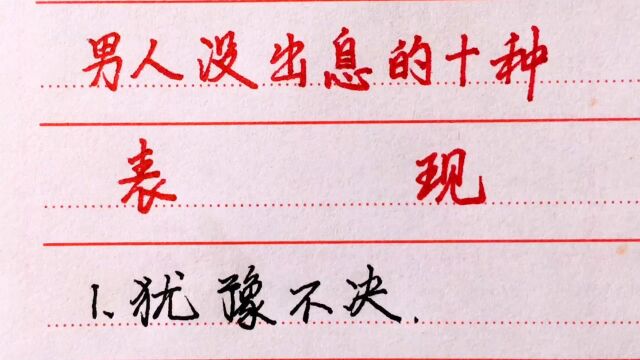 男人没出息的十种
表现
1.犹豫不决.